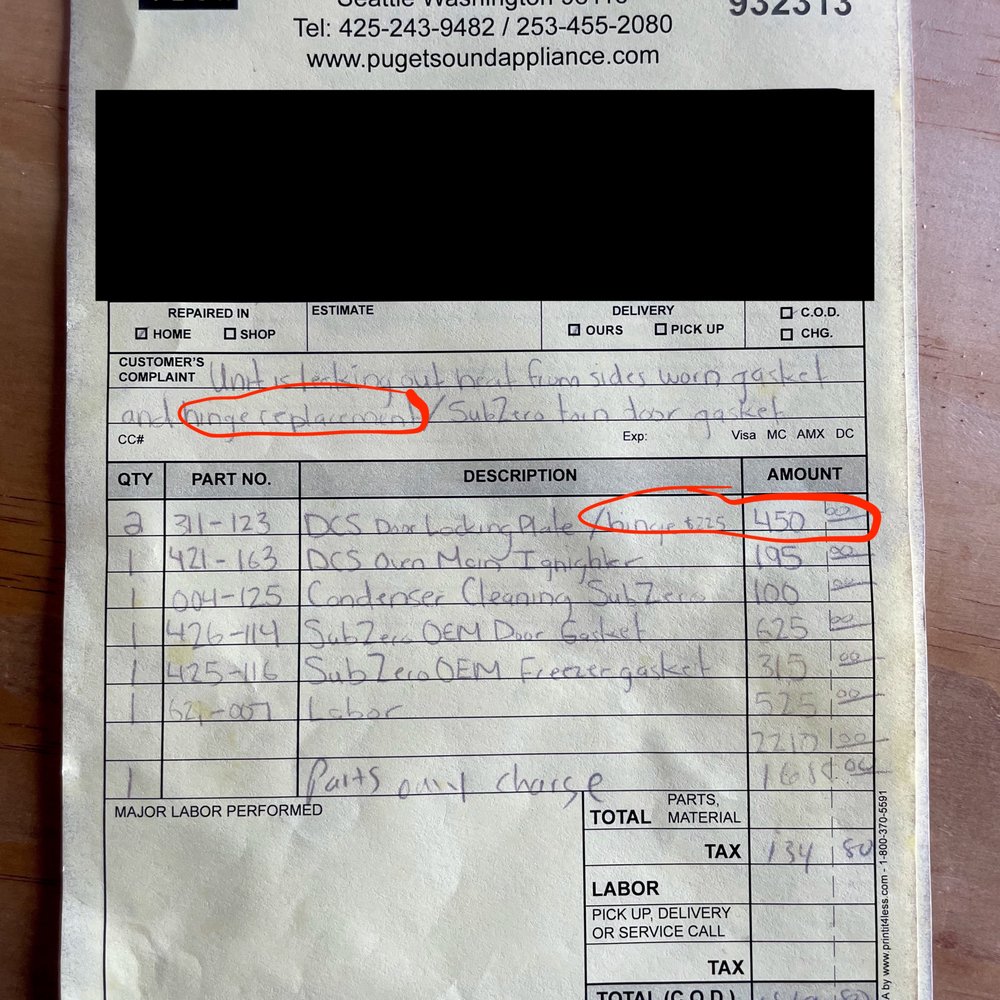 Tel: 425-243-9482 / 253-455-2080
932313
www.pugetsoundappliance.com
REPAIRED IN
HOME SHOP
ESTIMATE
DELIVERY
OURS PICK UP
C.O.D.
CHG.
CUSTOMER'S COMPLAINT Unit is leaking out heat from sides worn gasket
and hinge replacement / SubZero torn door gasket
CC# Exp: Visa MC AMX DC
QTY PART NO. DESCRIPTION AMOUNT
2 311-123 DCS Door Locking Plate /hinge $225 450 00
1 421-163 DCS Oven Main Ignighter 195 00
1 004-125 Condenser Cleaning SubZero 100 00
1 426-114 SubZero OEM Door Gasket 625 00
1 425-116 SubZero OEM Freezer gasket 315 00
1 621-007 Labor 525 00
2210 00
1 Parts only charge 00
MAJOR LABOR PERFORMED
TOTAL PARTS, MATERIAL
TAX 134 80
LABOR
PICK UP, DELIVERY OR SERVICE CALL
TAX
TOTAL (C.O.D.)
A by www.printit4less.com - 1-800-370-5591